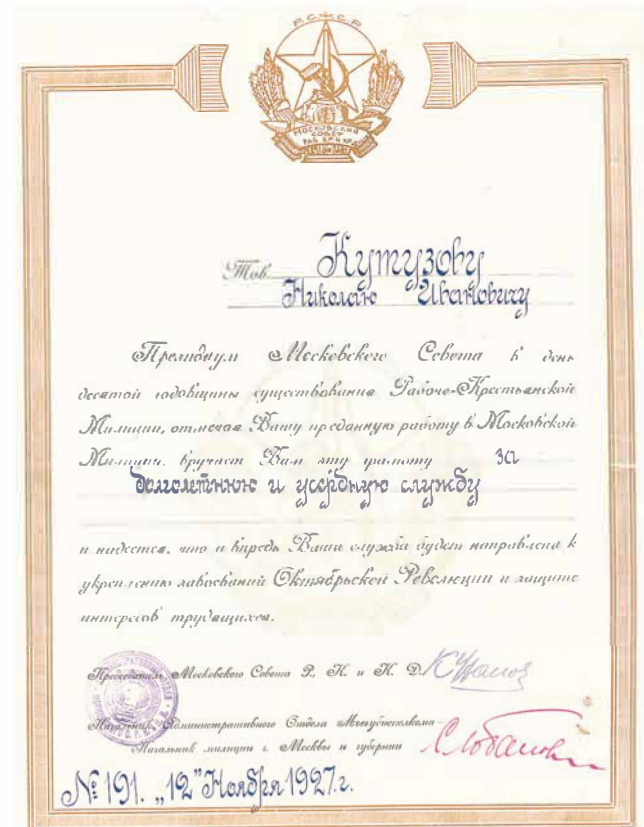 Р.С.Ф.С.Р.
МОСКОВСКИЙ
СОВЕТ
РАБ. КР. И КР. Д.
Тов. Кутузову
Николаю Ивановичу
Президиум Московского Совета в день
десятой годовщины существования Рабоче-Крестьянской
Милиции, отмечая Вашу преданную работу в Московской
Милиции, вручает Вам эту грамоту за
долголетнюю и усердную службу
и надеется, что и впредь Ваша служба будет направлена к
укреплению завоеваний Октябрьской Революции и защите
интересов трудящихся.
Председатель Московского Совета Р., К. и К. Д.
Начальник Административного Отдела Мосгубисполкома–
Начальник милиции г. Москвы и губернии
№ 191. „12” Ноября 1927 г.